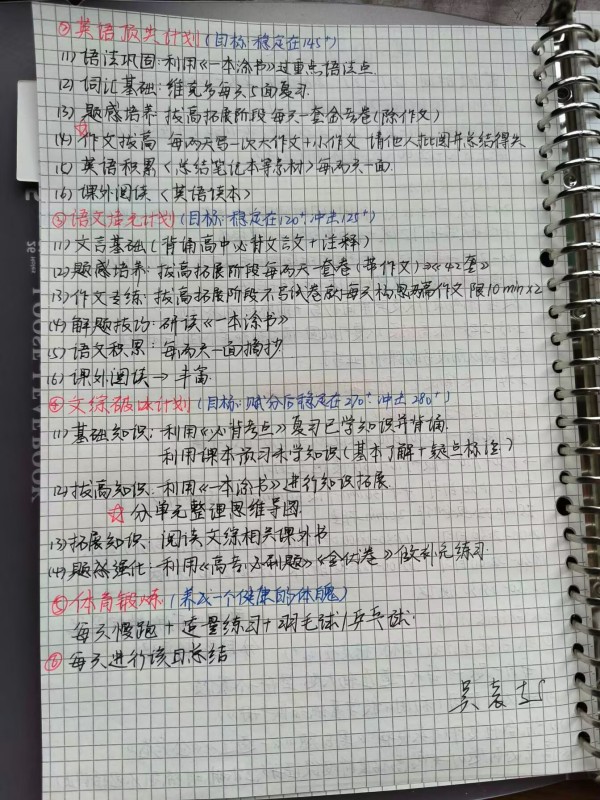 ②英语拔尖计划(目标:稳定在145⁺)
(1)语法巩固:利用《一本涂书》过重点语法点
(2)词汇基础:维克多每天5面复习.
(3)题感培养:拔高拓展阶段每天一套金考卷(除作文)
☆(4)作文拔高 每两天写一次大作文+小作文 请他人批阅并总结得失
(5)英语积累(总结笔记本等素材)每两天一面.
(6)课外阅读《英语读本》
③语文培尤计划(目标:稳定在120⁺冲击125⁺)
(1)文言基础(背诵高中必背文言文+注释)
(2)题感培养:拔高拓展阶段每两天一套卷(带作文)《42套》
(3)作文专练:拔高拓展阶段不写试卷每天构思两篇作文 限10min×2
(4)解题技巧:研读《一本涂书》
(5)语文积累:每两天一面摘抄
(6)课外阅读→丰富
④文综破冰计划(目标:赋分后稳定在270⁺冲击280⁺)
(1)基础知识:利用《必背考点》复习已学知识并背诵.
利用课本预习未学知识(基本了解+疑点标注)
(2)拔高知识:利用《一本涂书》进行知识拓展
☆分单元整理思维导图
(3)拓展知识:阅读文综相关课外书
(4)题感强化:利用《高考必刷题》《金优卷》做补充练习.
⑤体育锻炼(养成一个健康的体魄)
每天慢跑+适量练习+羽毛球/乒乓球.
⑥每天进行该日总结
LOOSE LEAF BOOK